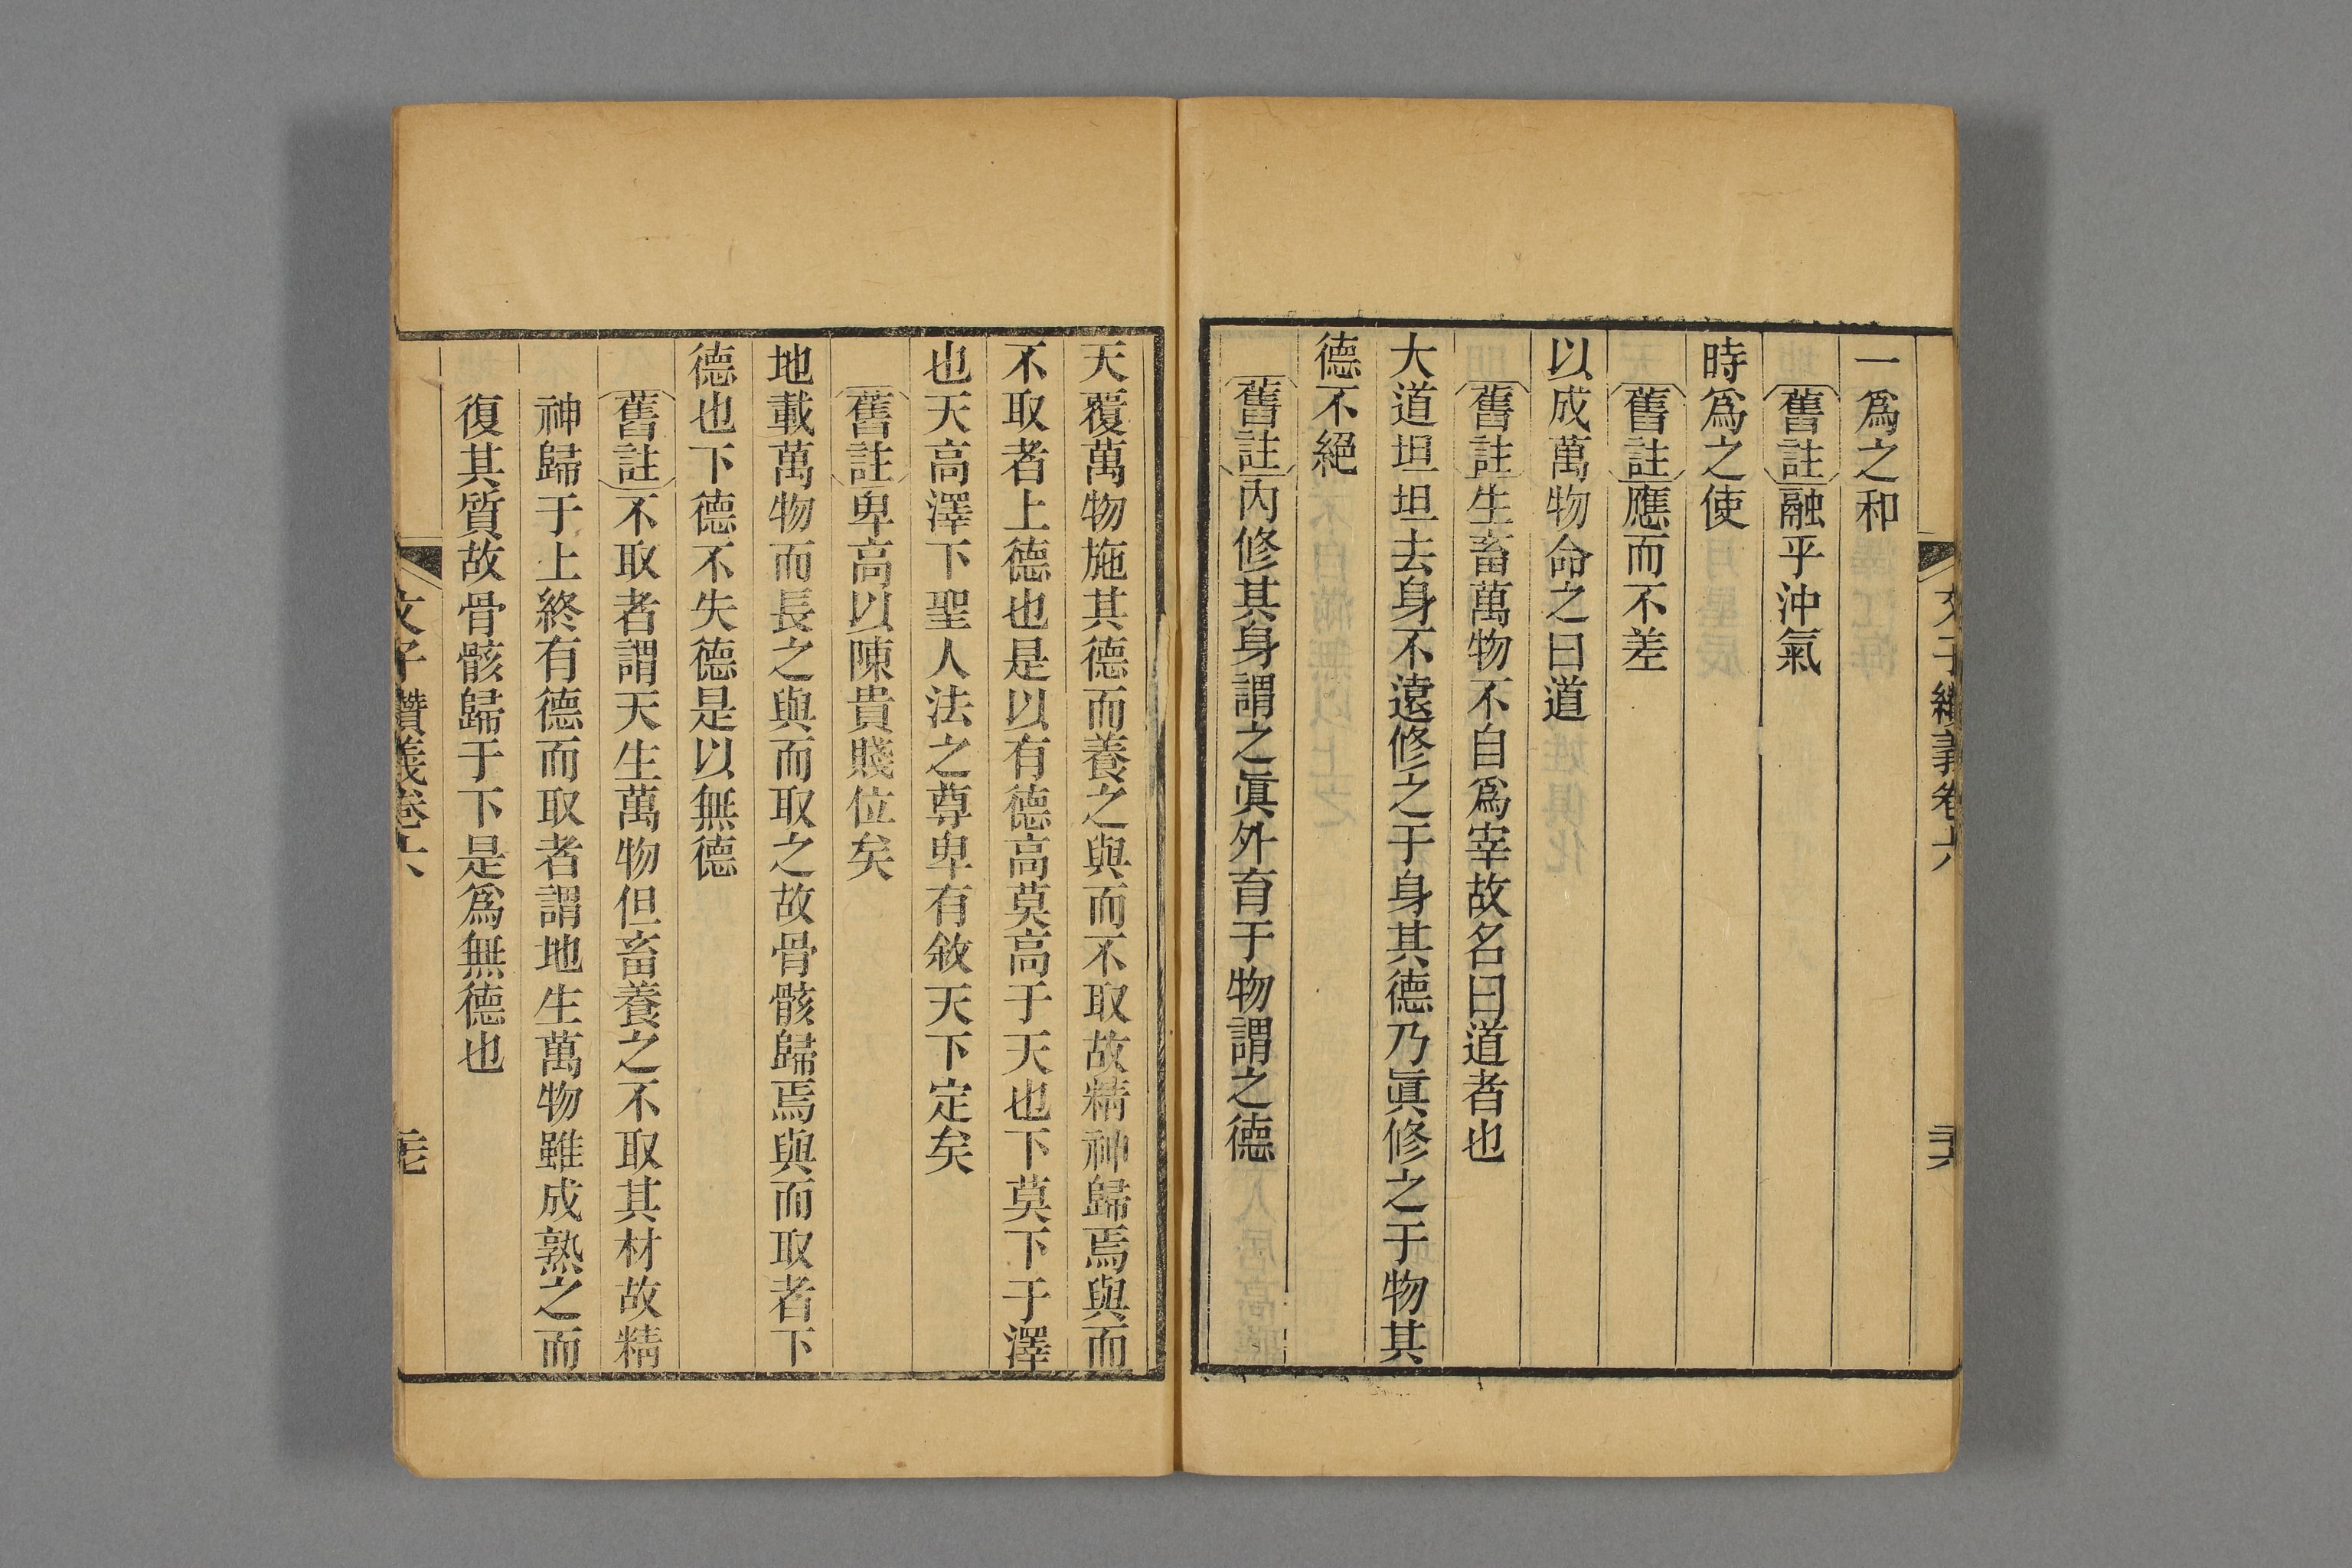 文子纘義卷六
一爲之和
舊註融乎沖氣
時爲之使
舊註應而不差
以成萬物命之曰道
舊註生畜萬物不自爲宰故名曰道者也
大道坦坦去身不遠修之于身其德乃眞修之于物其
德不絕
舊註內修其身謂之眞外育于物謂之德
天覆萬物施其德而養之與而不取故精神歸焉與而
不取者上德也是以有德高莫高于天也下莫下于澤
也天高澤下聖人法之尊卑有敘天下定矣
舊註卑高以陳貴賤位矣
地載萬物而長之與而取之故骨骸歸焉與而取者下
德也下德不失德是以無德
舊註不取者謂天生萬物但畜養之不取其材故精
神歸于上終有德而取者謂地生萬物雖成熟之而
復其質故骨骸歸于下是爲無德也
文子纘義卷六